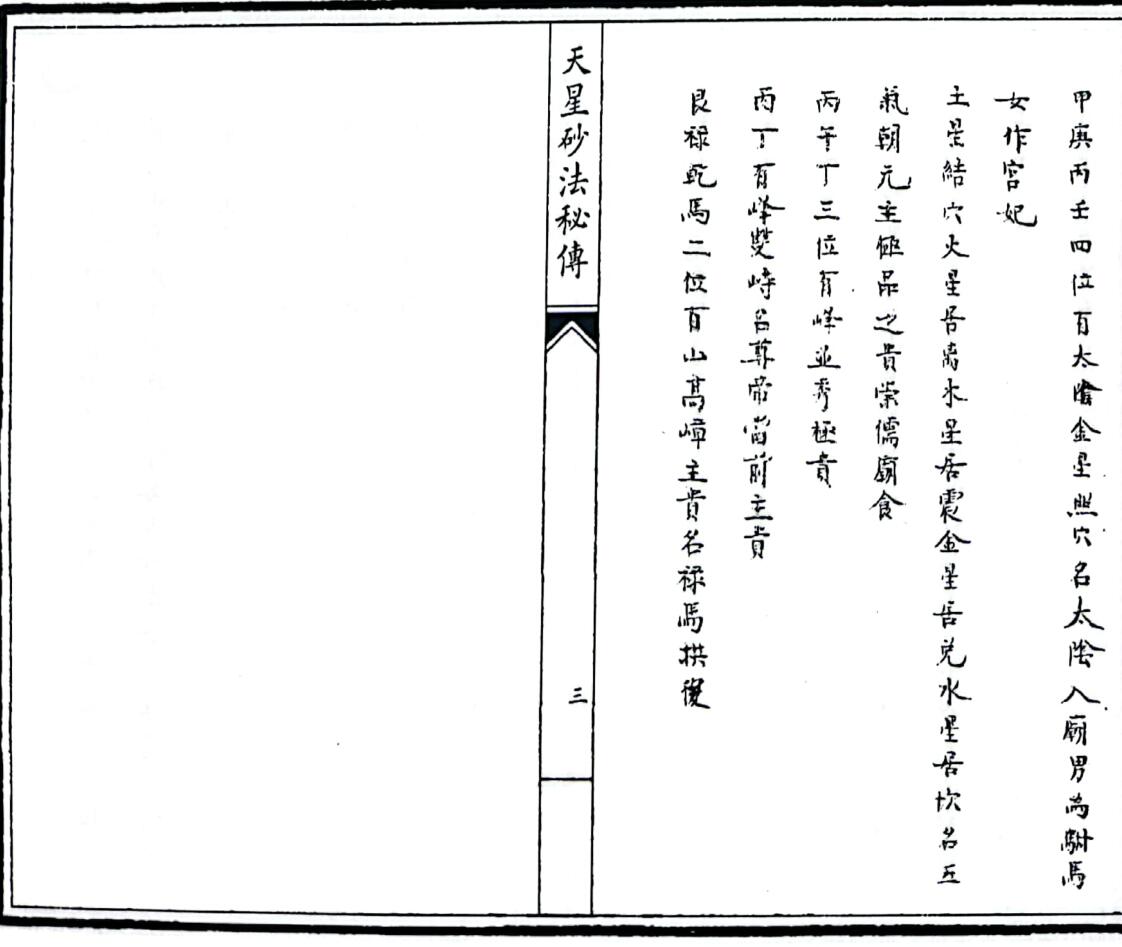 甲庚丙壬四位有太陰金星照穴名太陰入廟男為駙馬
女作宮妃
土星結穴火星居离木星居震金星居兌水星居坎名五
氣朝元主極品之貴崇儒廟食
丙午丁三位有峰並秀極貴
丙丁有峰雙峙名尊帝當前主貴
艮禄乾馬二位有山高嶂主貴名禄馬拱後
天星砂法秘傳
三